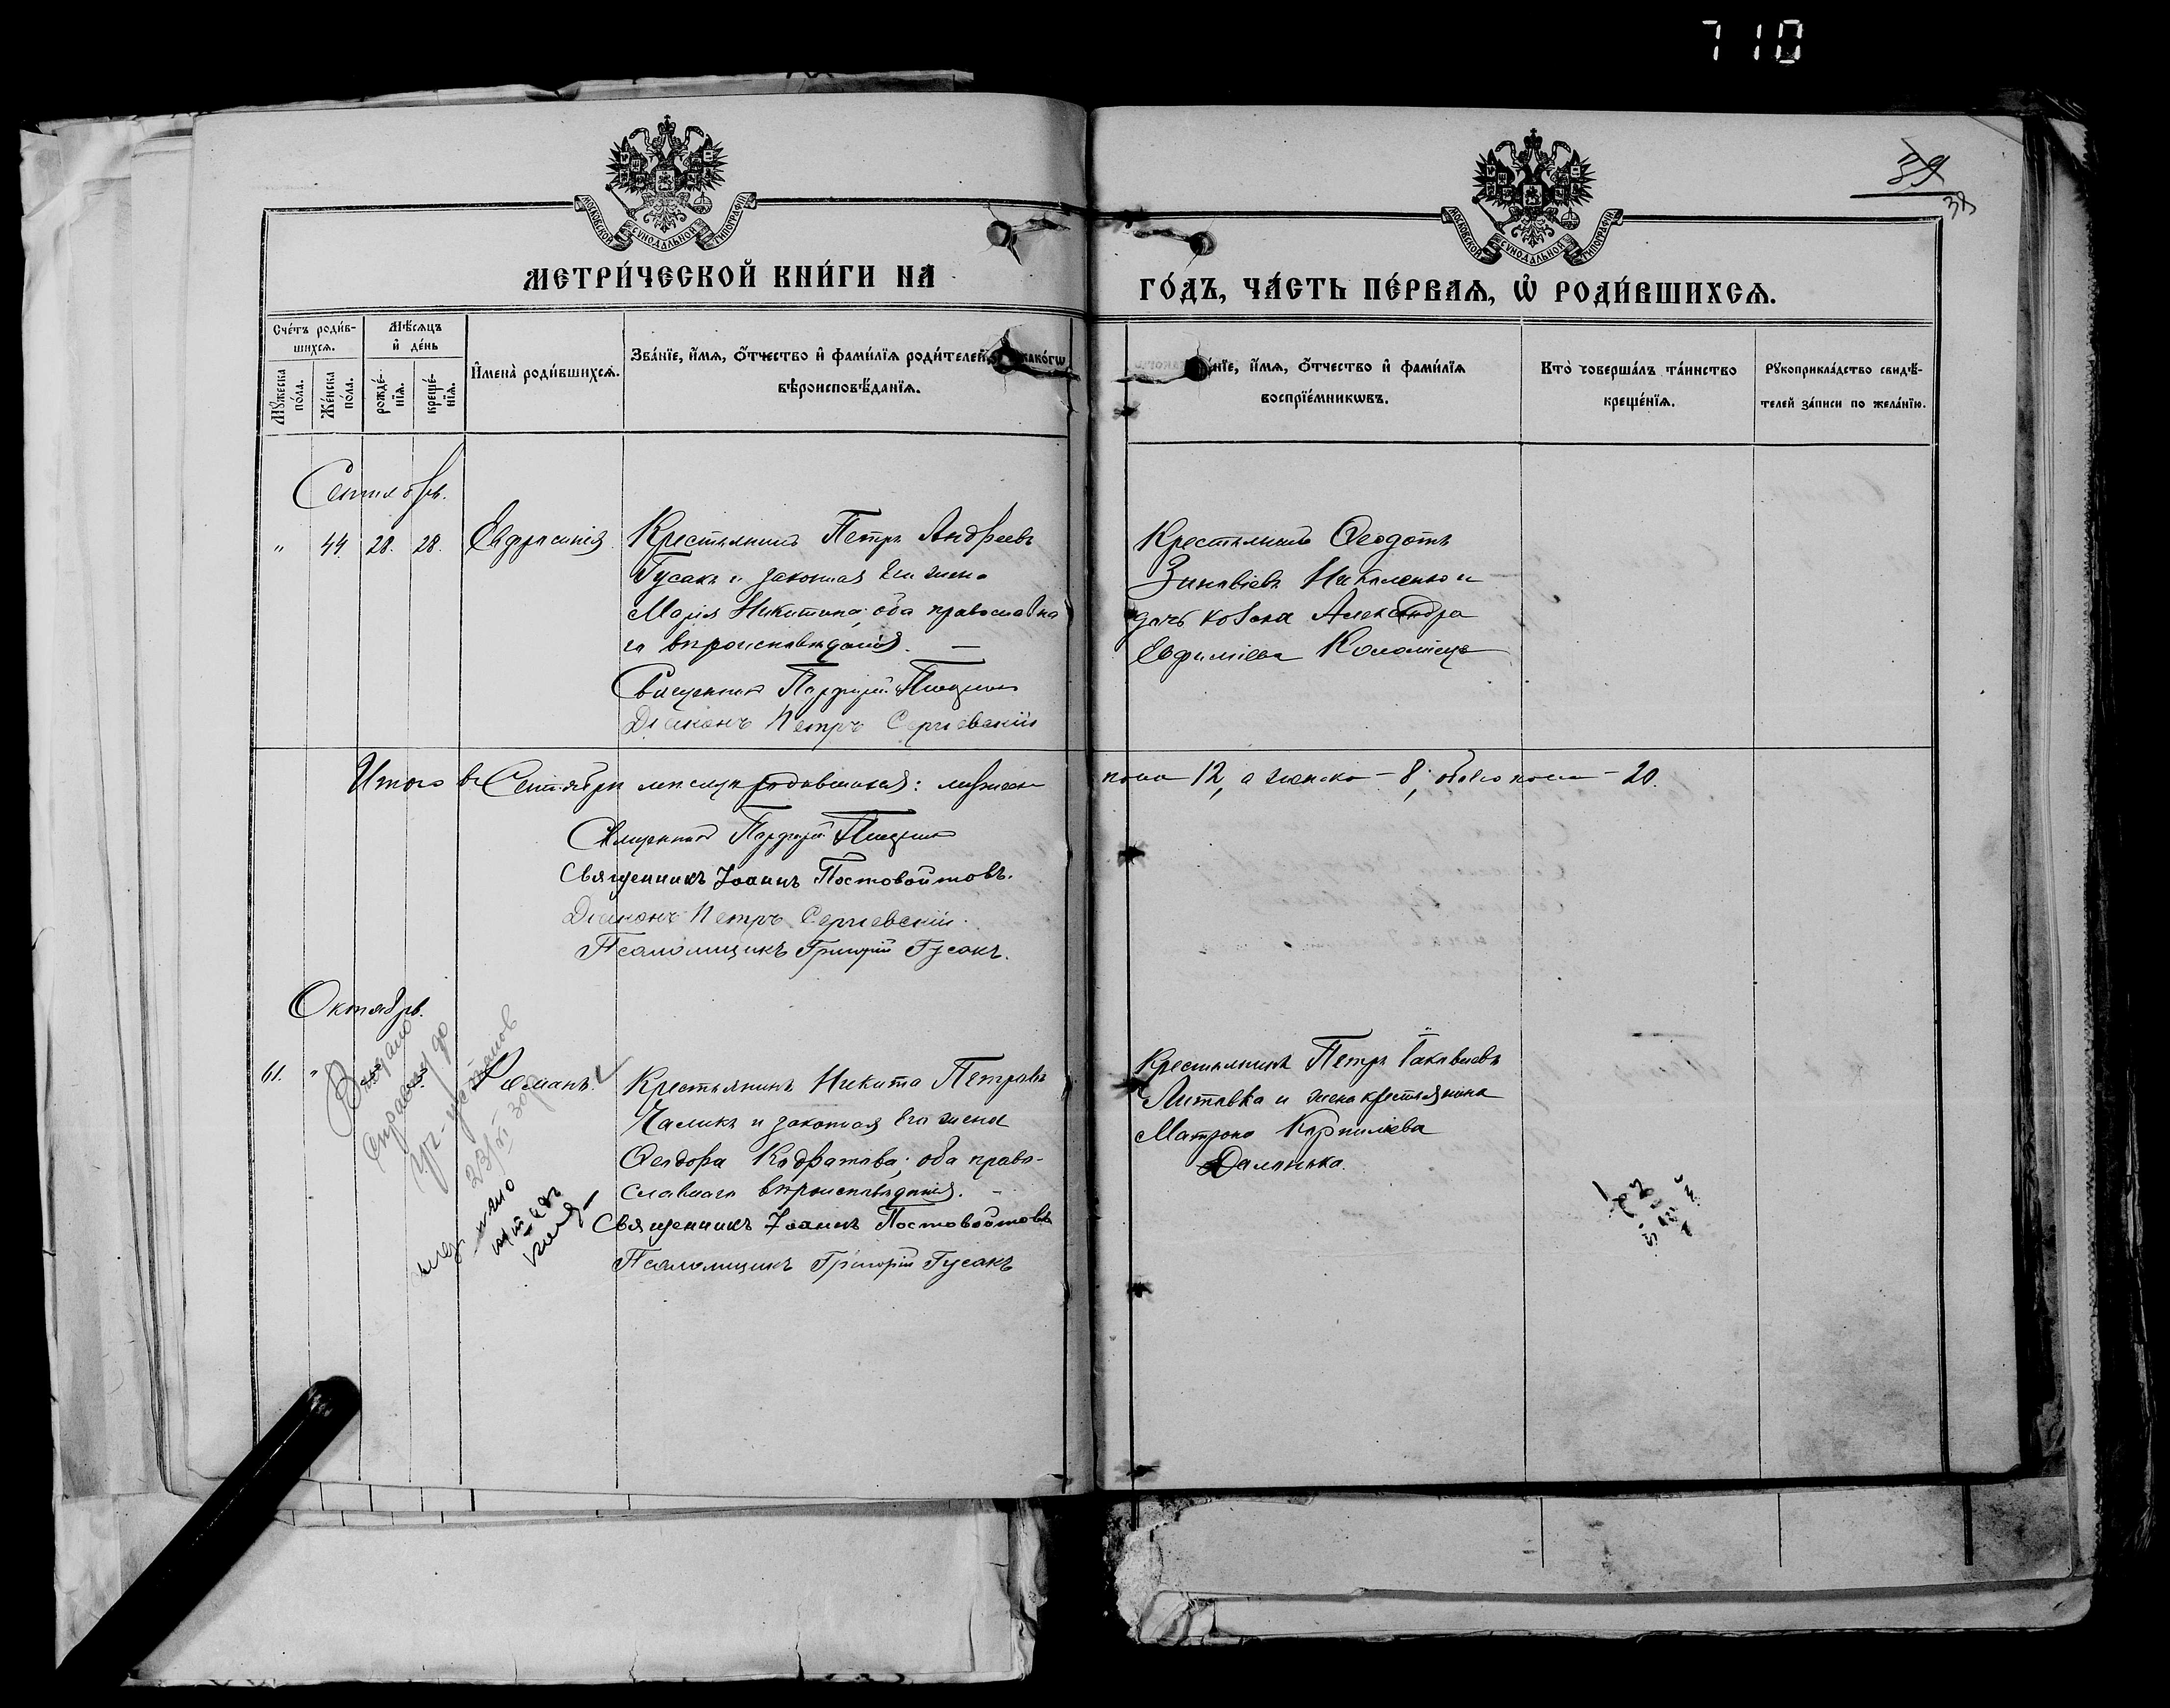 710
39
38
МОСКОВСКОЙ СѴНОДАЛЬНОЙ ТИПОГРАФІИ
МОСКОВСКОЙ СѴНОДАЛЬНОЙ ТИПОГРАФІИ
МЕТРИ́ЧЕСКОЙ КНИ́ГИ НА
ГО́ДЪ, ЧА́СТЬ ПЕ́РВАЯ, Ѡ҆ РОДИ́ВШИХСЯ.
Сче́тъ роди́в-
шихся.
Мѣ́сяцъ
и҆ де́нь
Мꙋ́жеска по́ла.
Же́нска по́ла.
рожде́-
нїя.
креще́-
нїя.
И҆мена̀ роди́вшихся.
Зва́нїе, и҆́мя, ѻ҆́тчество и҆ фами́лїя роди́телей, како́гѡ
вѣроисповѣ́данїя.
нїе, и҆́мя, ѻ҆́тчество и҆ фами́лїя
воспрїе́мникѡвъ.
Кто̀ соверша́лъ та́инство
креще́нїя.
Рꙋкоприкла́дство свидѣ́-
телей за́писи по жела́нїю.
Сентябрь.
" 44. 28. 28. Евфросинія
Крестьянинъ Петръ Андреевъ
Гусакъ и законная его жена
Марія Никитина; оба православна
го вѣроисповѣданія. —
Священникъ Порфирій
Діаконъ Петръ Сергіевскій
Крестьянинъ Ѳеодотъ
Зиновіевъ и
дочь козака Александра
Евфиміева Коломіецъ
Итого въ Сентябрѣ мѣсяцѣ родившихся: мужеска
пола 12, а женска — 8; обоего пола — 20.
Священникъ Порфирій
Священникъ Іоаннъ Постовойтовъ.
Діаконъ Петръ Сергіевскій.
Псаломщикъ Григорій Гусакъ.
Октябрь.
61. " Романъ.
Крестьянинъ Никита Петровъ
Чаликъ и законная его жена
Ѳеодора Кодратова; оба право-
славнаго вѣроисповѣданія. –
Священникъ Іоаннъ Постовойтовъ
Псаломщикъ Григорій Гусакъ
Крестьянинъ Петръ Іаковлевъ
Литовка и жена крестьянина
Матрона Корнилева
Даленька.
Видано
справку до
23/VI